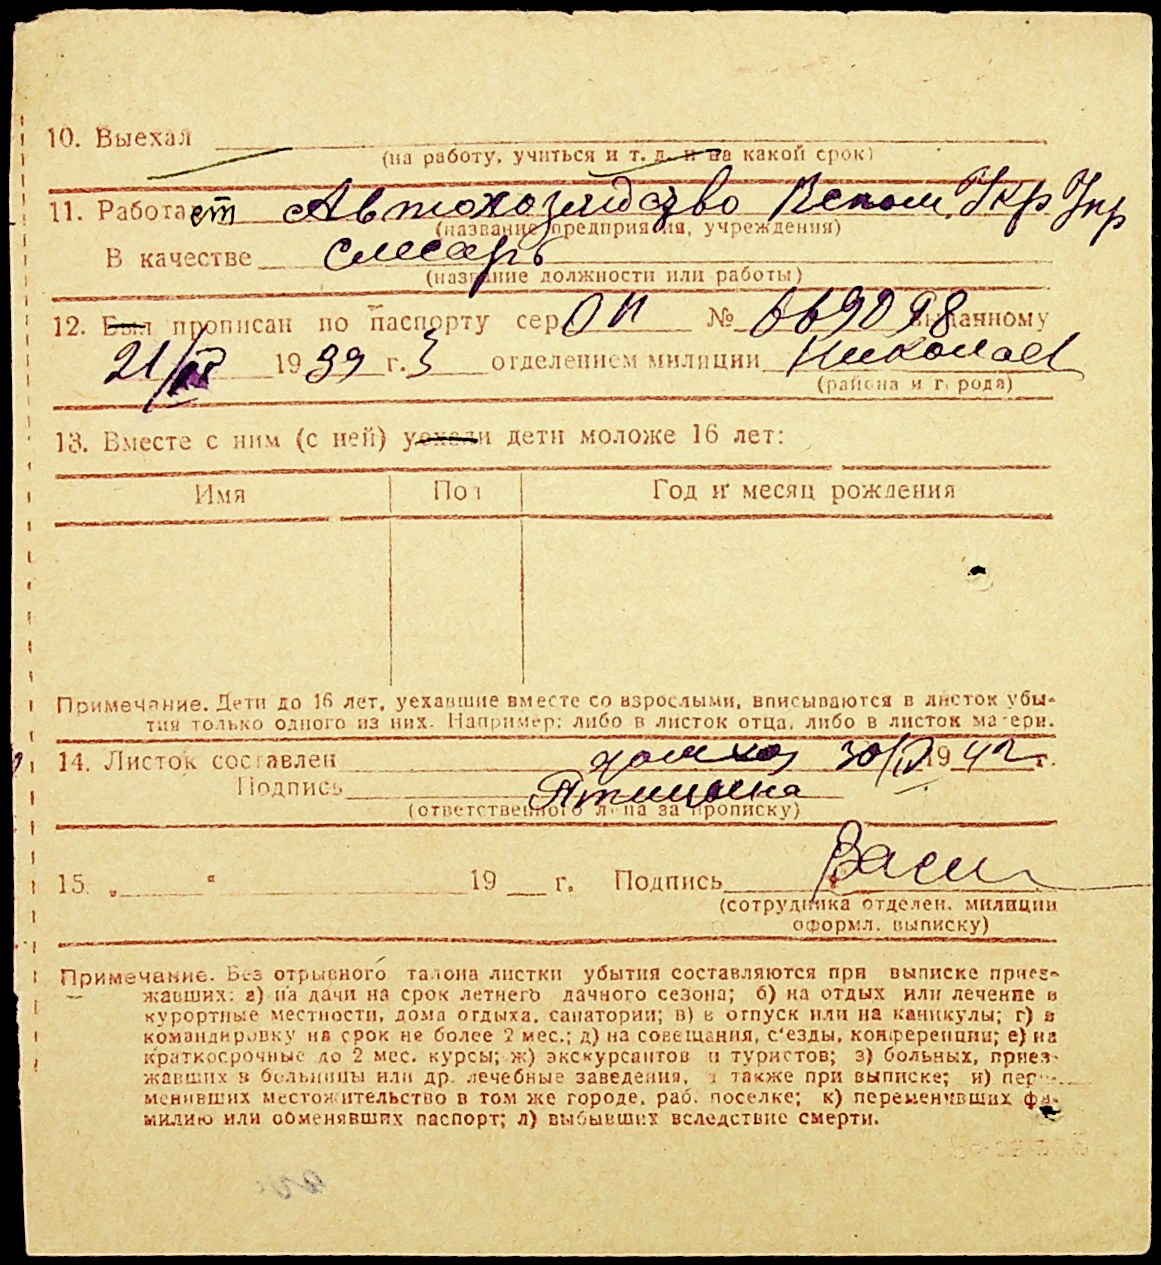 10. Выехал
(на работу, учиться и т. д. и на какой срок)
11. Работает Автохозяйство Вспом. Укр Упр
(название предприятия, учреждения)
В качестве слесарь
(название должности или работы)
12. Был прописан по паспорту сер. ОП № 669098 выданному
21/ 1939 г. 3 отделением милиции Николаев
(района и города)
13. Вместе с ним (с ней) уехали дети моложе 16 лет:
Имя Пол Год и месяц рождения
Примечание. Дети до 16 лет, уехавшие вместе со взрослыми, вписываются в листок убы-
тия только одного из них. Например: либо в листок отца, либо в листок матери.
14. Листок составлен домхоз 30/IV 1942 г.
Подпись Птицына
(ответственного лица за прописку)
15. „ “ 19 г. Подпись Васи
(сотрудника отделен. милиции
оформл. выписку)
Примечание. Без отрывного талона листки убытия составляются при выписке приез-
жавших: а) на дачи на срок летнего дачного сезона; б) на отдых или лечение в
курортные местности, дома отдыха, санатории; в) в отпуск или на каникулы; г) в
командировку на срок не более 2 мес.; д) на совещания, с'езды, конференции; е) на
краткосрочные до 2 мес. курсы; ж) экскурсантов и туристов; з) больных, приез-
жавших в больницы или др. лечебные заведения, а также при выписке; и) пере-
менивших местожительство в том же городе, раб. поселке; к) переменивших фа-
милию или обменявших паспорт; л) выбывших вследствие смерти.